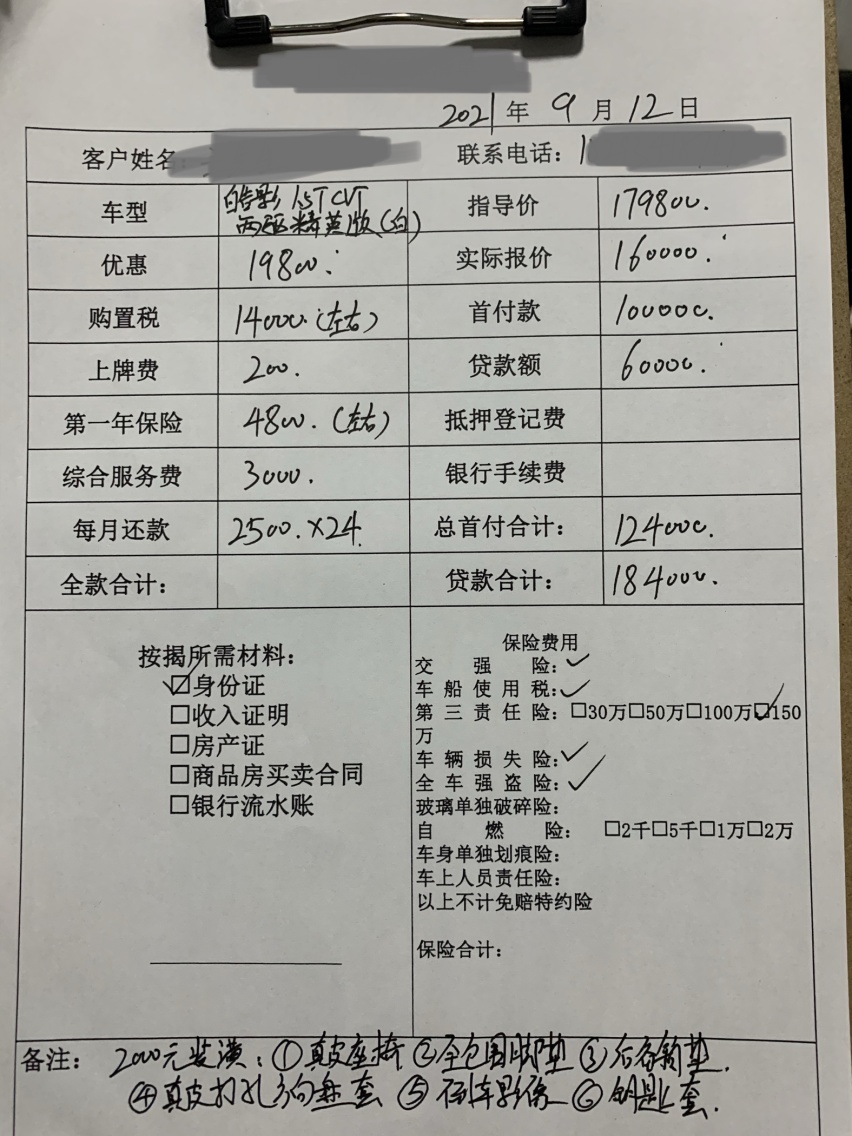 2021年 9月 12日
客户姓名: 联系电话: 1
车型 皓影 1.5T CVT 两驱精英版(白) 指导价 179800.
优惠 19800. 实际报价 160000.
购置税 14000.(左右) 首付款 100000.
上牌费 200. 贷款额 60000.
第一年保险 4800.(左右) 抵押登记费
综合服务费 3000. 银行手续费
每月还款 2500.×24. 总首付合计: 124000.
全款合计: 贷款合计: 184000.
按揭所需材料:
☑身份证
□收入证明
□房产证
□商品房买卖合同
□银行流水账
保险费用
交强险:✓
车船使用税:✓
第三责任险:□30万□50万□100万☑150
万
车辆损失险:✓
全车强盗险:✓
玻璃单独破碎险:
自燃险: □2千□5千□1万□2万
车身单独划痕险:
车上人员责任险:
以上不计免赔特约险
保险合计:
备注: 2000元装潢:①真皮座椅 ②全包围脚垫 ③后备箱垫.
④真皮打孔方向盘套 ⑤倒车影像 ⑥钥匙套.